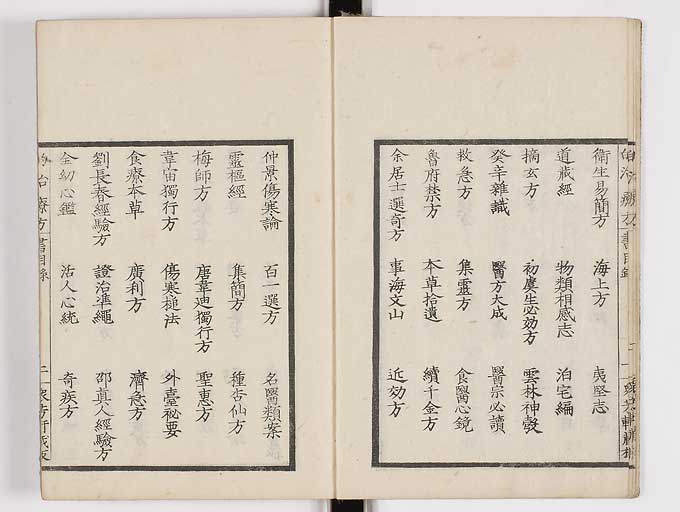 衛生易簡方 海上方 夷堅志
道藏經 物類相感志 泊宅編
摘玄方 初虞生必效方 雲林神彀
癸辛雜識 醫方大成 醫宗必讀
救急方 集靈方 食醫心鏡
魯府禁方 本草拾遺 續千金方
余居士選奇方 事海文山 近効方
仲景傷寒論 百一選方 名醫類案
靈樞經 集簡方 種杏仙方
梅師方 唐韋廸獨行方 聖惠方
韋宙獨行方 傷寒槌法 外臺祕要
食療本草 廣利方 濟急方
劉長春經驗方 證治準繩 邵真人經驗方
全幼心鑑 活人心統 奇疾方
治療方 書目録 二